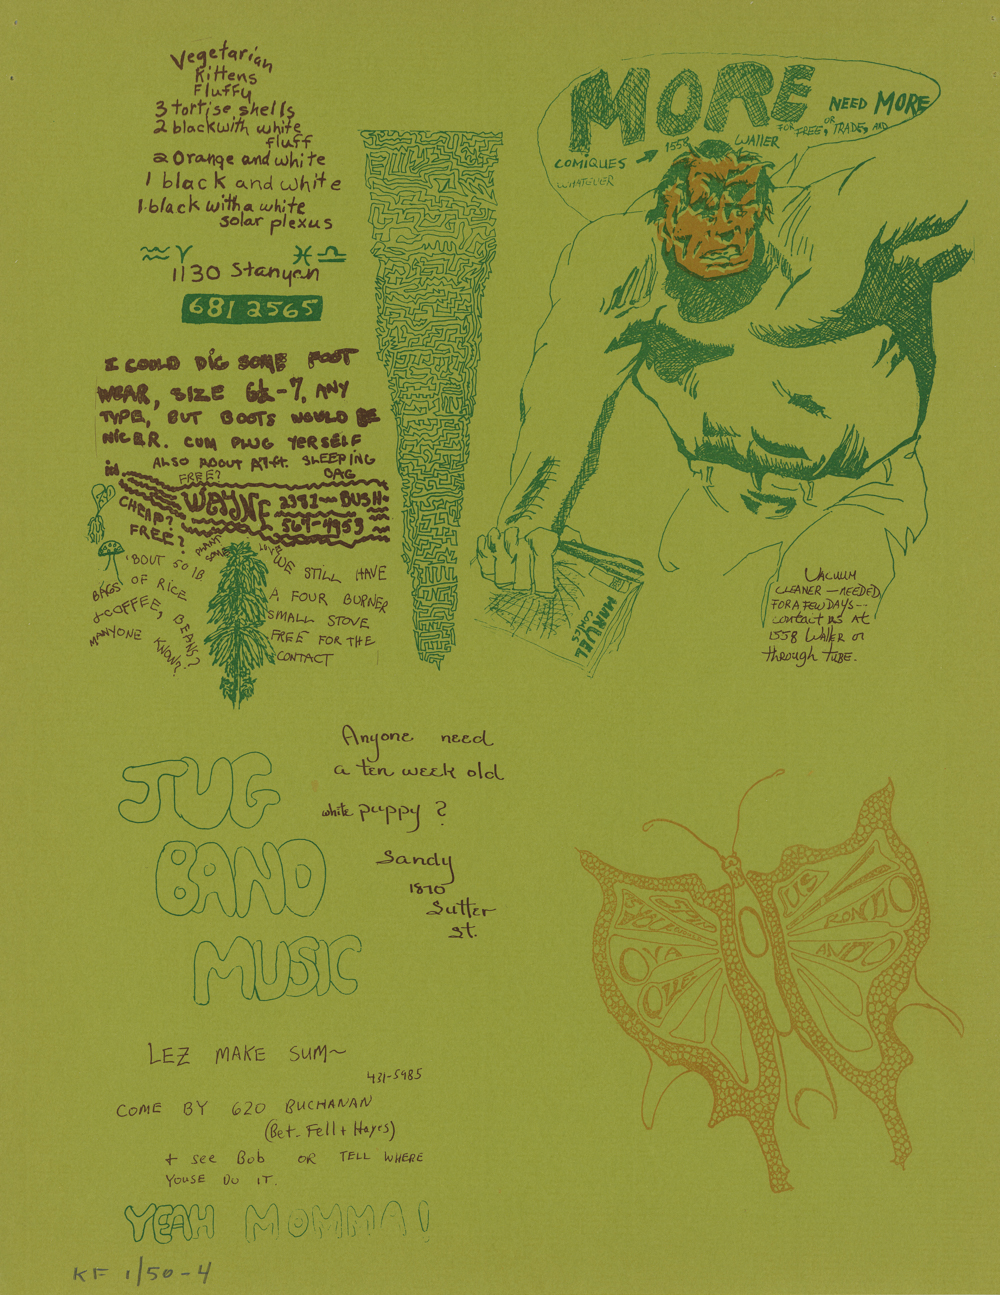 Vegetarian
Kittens
Fluffy
3 tortise shells
2 black with white
fluff
2 Orange and white
1 black and white
1 black with a white
solar plexus
♒ ♈ ♓ ♎
1130 Stanyan
681 2565
MORE
NEED MORE
FOR FREE, OR TRADE, AND
COMIQUES → 1558 WALLER
WHATEVER
MARVEL
COMICS
I COULD DIG SOME FOOT
WEAR, SIZE 6½-7, ANY
TYPE, BUT BOOTS WOULD BE
NICER. CUM PLUG YERSELF
in
ALSO ABOUT A 7-ft. SLEEPING
BAG
FREE?
CHEAP?
FREE?
WAYNE 2381 BUSH
567-4953
PLANT
SOME
LOVE
'BOUT 50 lb
BAGS OF RICE
+ COFFEE, BEANS?
ANYONE KNOW?
WE STILL HAVE
A FOUR BURNER
SMALL STOVE
FREE FOR THE
CONTACT
VACUUM
CLEANER — NEEDED
FOR A FEW DAYS --
contact us AT
1558 Waller or
through TUBE.
JUG
BAND
MUSIC
Anyone need
a ten week old
white puppy?
Sandy
1870
Sutter
St.
OVA
QUE
RONDO
ANDO
LEZ MAKE SUM~
431-5985
COME BY 620 BUCHANAN
(Bet. Fell + Hayes)
+ see Bob OR TELL WHERE
YOUSE DO IT.
YEAH MOMMA!
KF 1/50-4